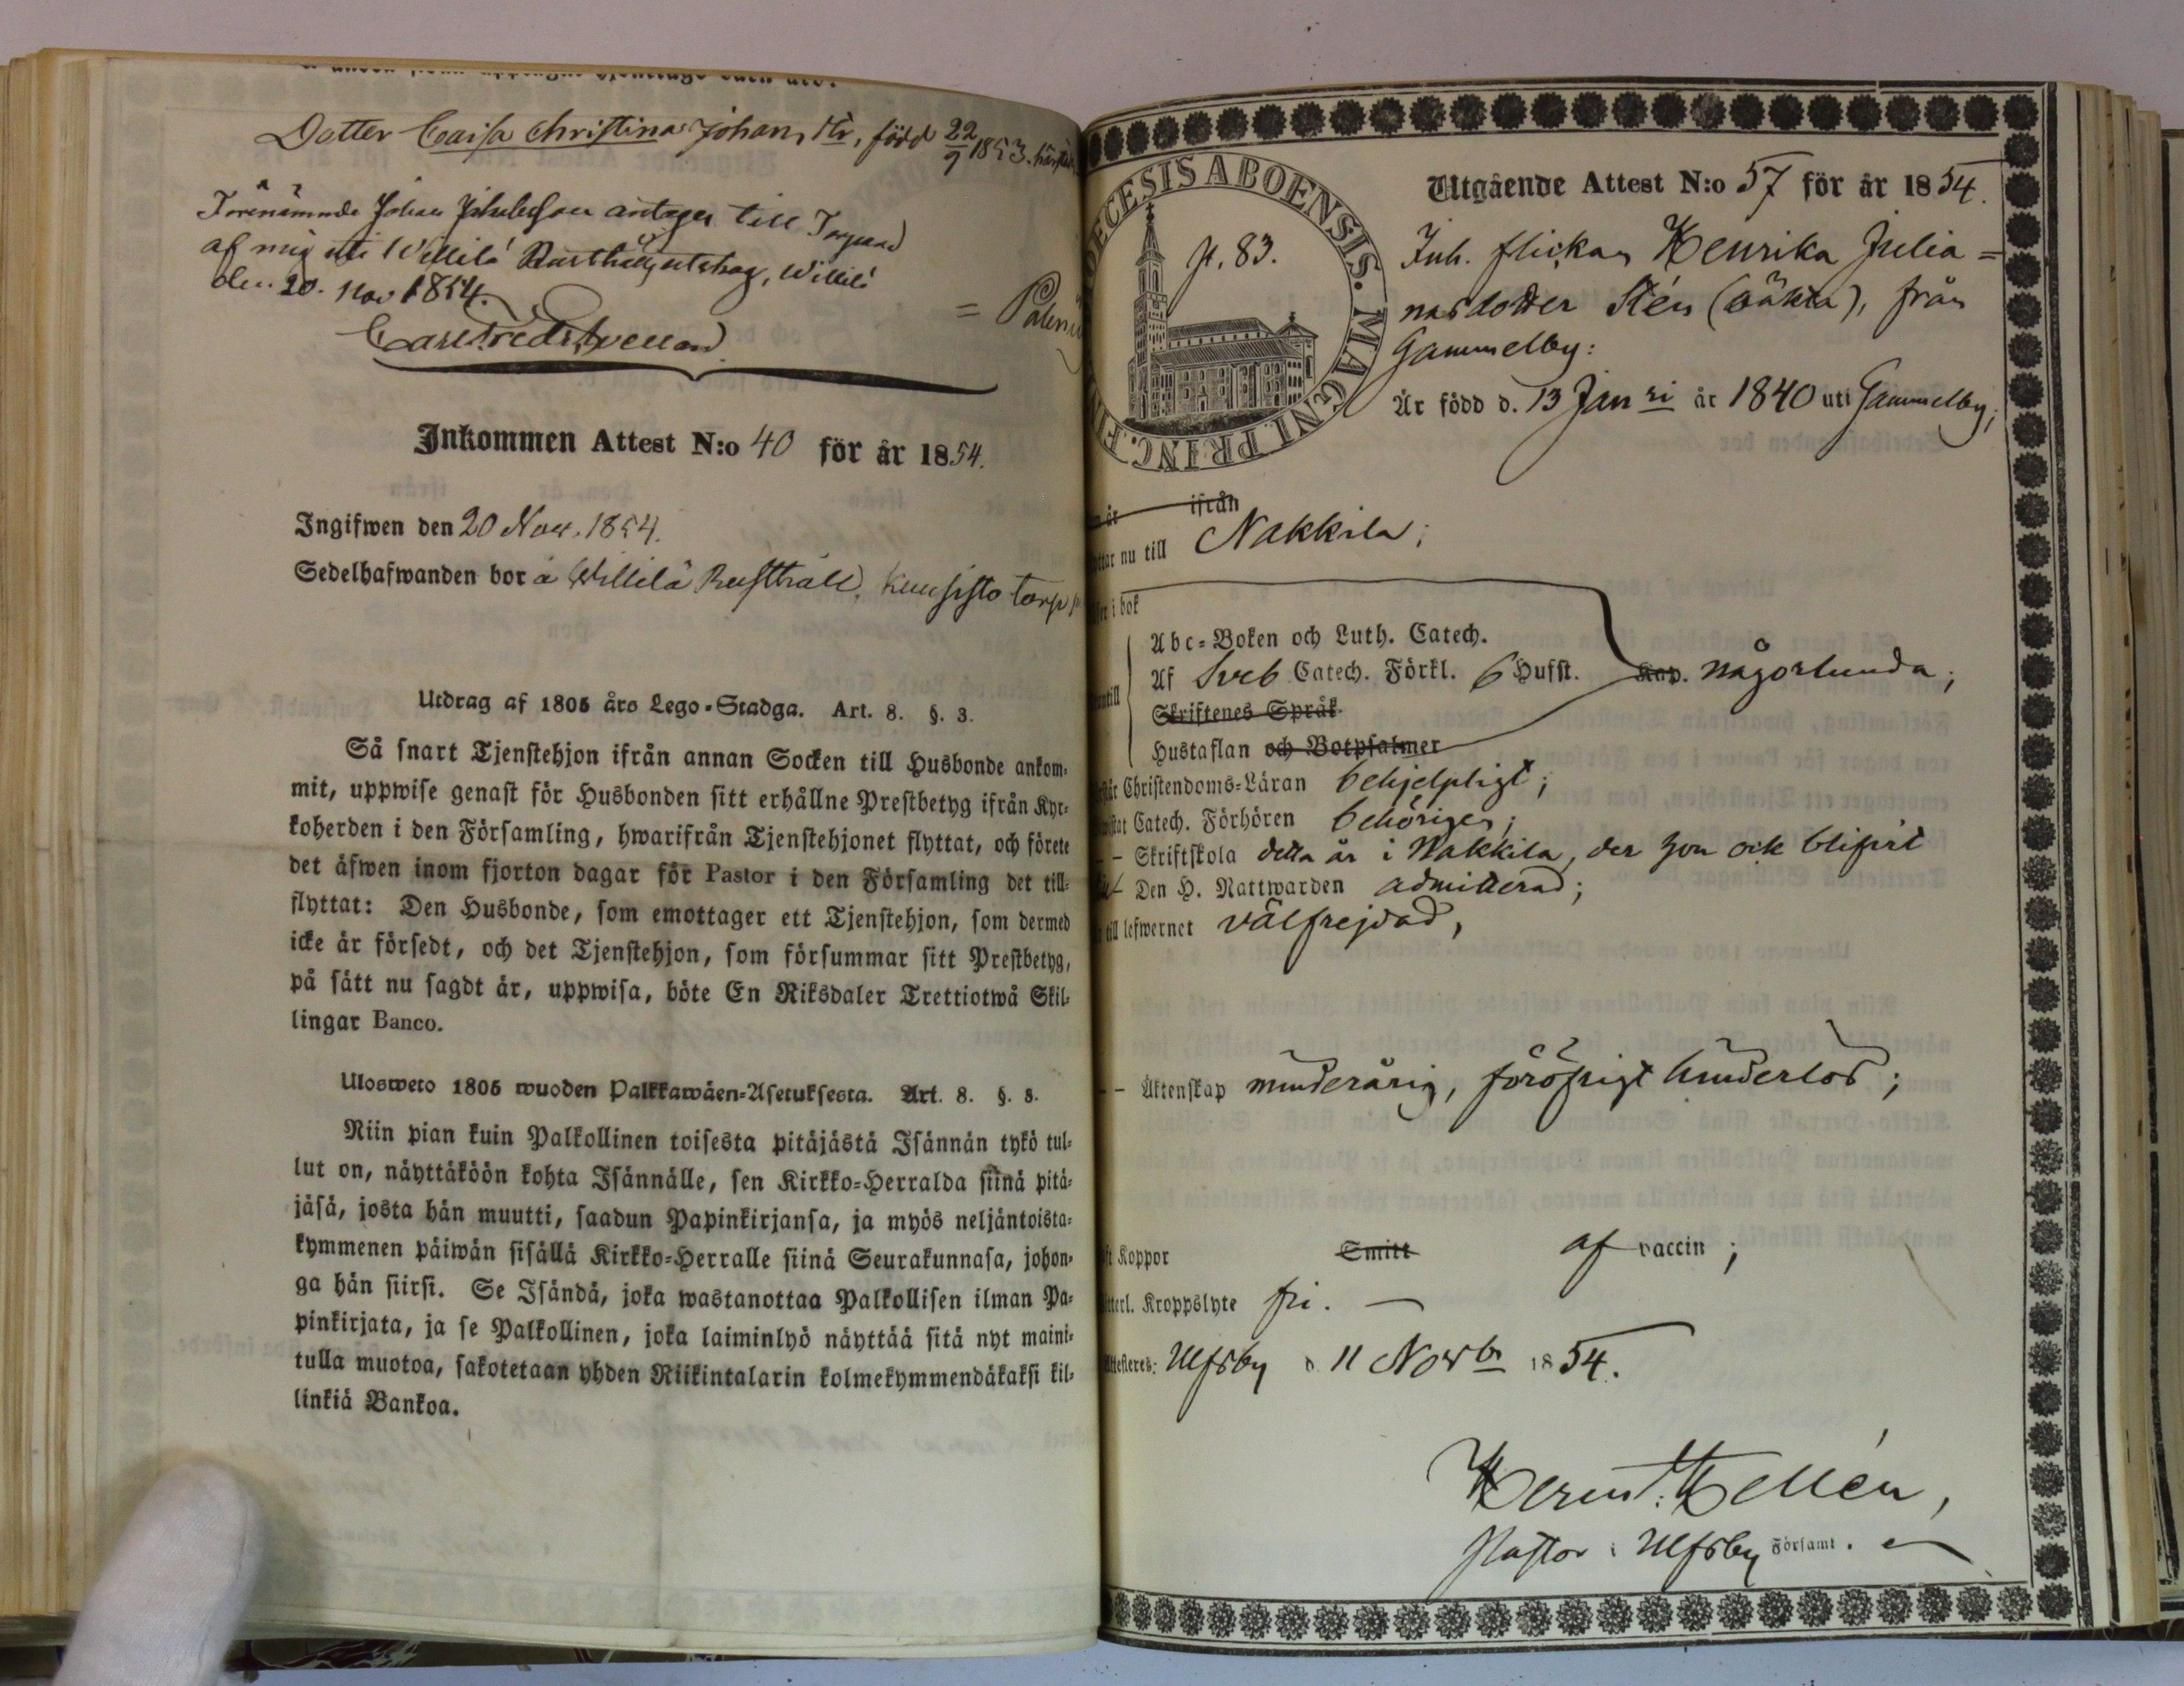 Dotter Caisa Christina Johans dr, född 22/9 1853.
Förenämnde Johan antages till Torpare
af mig uti Willilä Rusthålls, Willilä
den 20. Nov 1854.
Carl Fredr.
Inkommen Attest N:o 40 för år 1854.
Ingifwen den 20 Nov. 1854.
Sedelhafwanden bor å Willilä Rusthåll, Kuusisto torp
Utdrag af 1805 års Lego-Stadga. Art. 8. §. 3.
Så snart Tjenstehjon ifrån annan Socken till Husbonde ankom-
mit, uppwise genast för Husbonden sitt erhållne Prestbetyg ifrån Kyr-
koherden i den Församling, hwarifrån Tjenstehjonet flyttat, och förete
det äfwen inom fjorton dagar för Pastor i den Församling det till-
flyttat: Den Husbonde, som emottager ett Tjenstehjon, som dermed
icke är försedt, och det Tjenstehjon, som försummar sitt Prestbetyg,
på sätt nu sagdt är, uppwisa, böte En Riksdaler Trettiotwå Skil-
lingar Banco.
Ulosweto 1805 wuoden Palkkawäen-Asetuksesta. Art. 8. §. 3.
Niin pian kuin Palkollinen toisesta pitäjästä Isännän tykö tul-
lut on, näyttäköön kohta Isännälle, sen Kirkko-Herralda siinä pitä-
jäsä, josta hän muutti, saadun Papinkirjansa, ja myös neljäntoista-
kymmenen päiwän sisällä Kirkko-Herralle siinä Seurakunnasa, johon-
ga hän siirsi. Se Isändä, joka wastanottaa Palkollisen ilman Pa-
pinkirjata, ja se Palkollinen, joka laiminlyö näyttää sitä nyt maini-
tulla muotoa, sakotetaan yhden Riikintalarin kolmekymmendäkaksi kil-
linkiä Bankoa.
DECESIS ABOENSIS. MAGNI PRINC. FIN
p. 83.
Utgående Attest N:o 57 för år 1854.
Inh. flickan Henrika Julia=
nasdotter Stén (oäkta), från
Gammelby:
Är född d. 13 Janri år 1840 uti Gammelby;
är ifrån
nu till Nakkila;
i bok
Abc-Boken och Luth. Catech.
Af Sveb Catech. Förkl. 6 Hufst. Kap. någorlunda;
Skriftenes Språk.
Hustaflan och Botpsalmer
Christendoms-Läran behjelpligt;
Catech. Förhören behörigen;
- - Skriftskola detta år i Nakkila, der hon ock blifvit
Den H. Nattwarden admitterad;
till lefwernet välfrejdad,
- - Äktenskap minderårig, föröfrigt hinderlös;
Koppor Smitt af vaccin;
Kroppslyte fri. —
Ulfsby d. 11 Novbr 1854.
Hernd. Hellén,
Pastor i Ulfsby Församl.